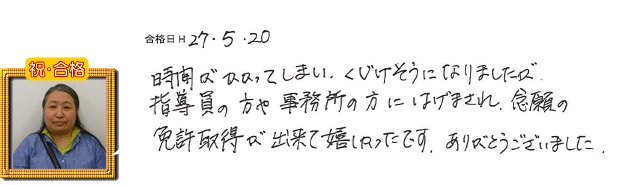 祝・合格
合格日 H 27・5・20
時間がかかってしまい、くじけそうになりましたが、
指導員の方や事務所の方にはげまされ、念願の
免許取得が出来て嬉しかったです。ありがとうございました。